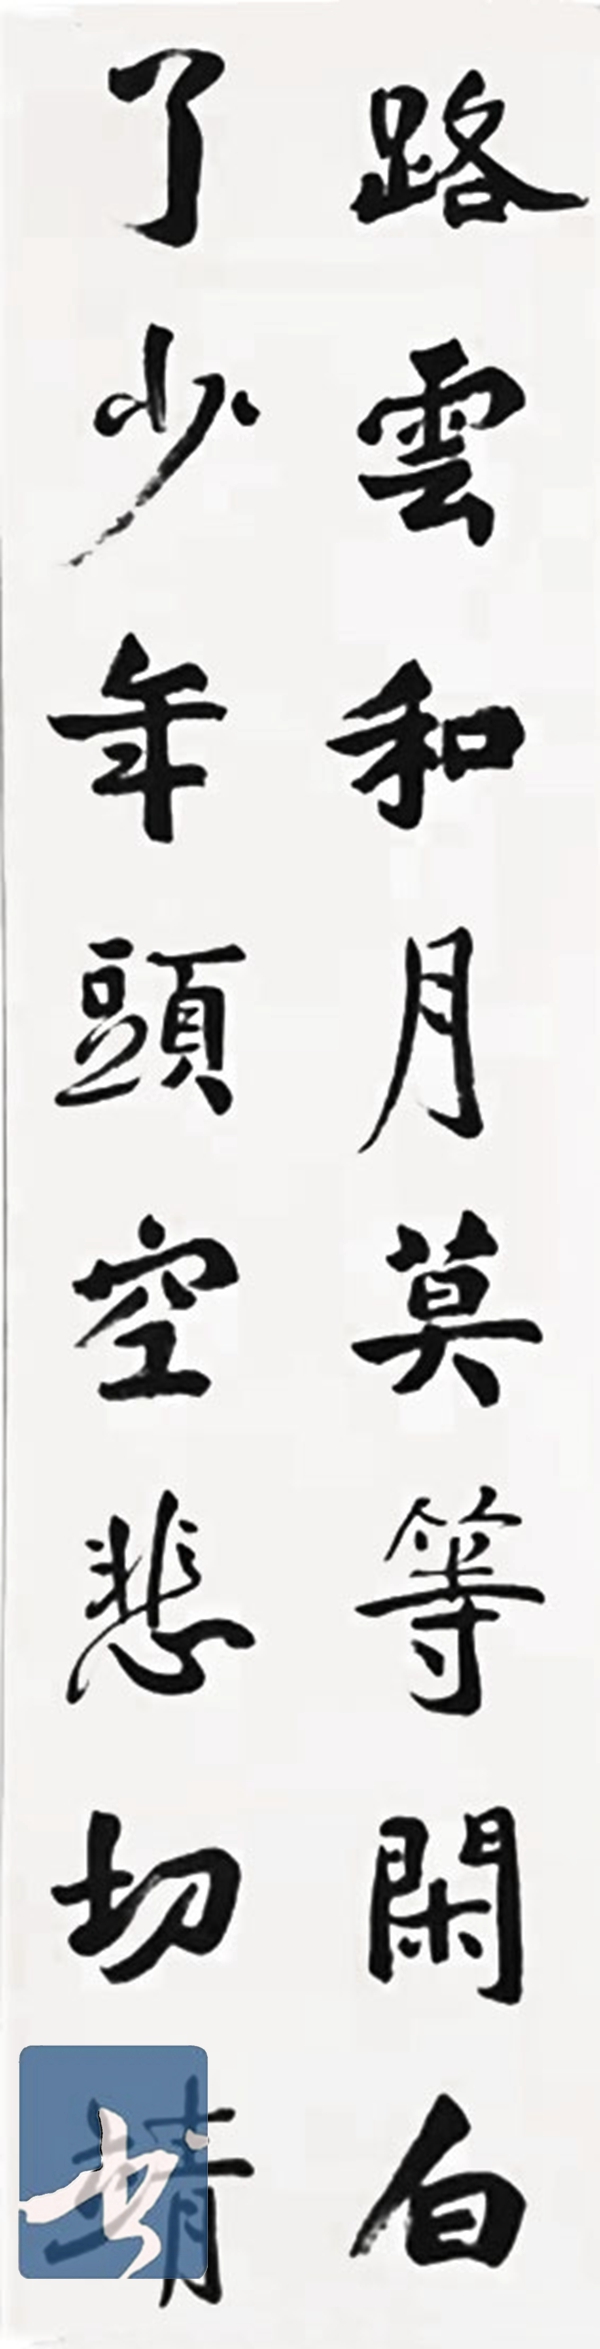 路雲和月莫等閑白
了少年頭空悲切靖